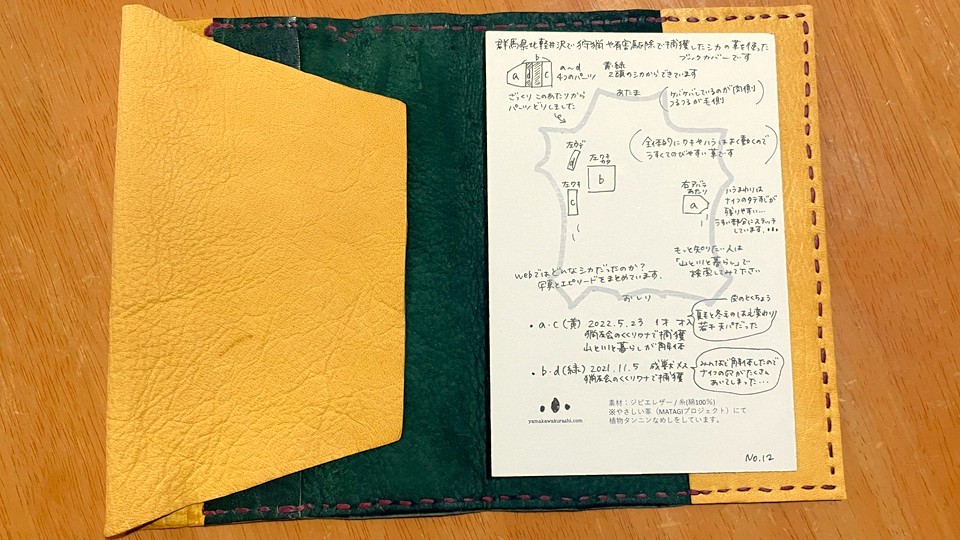 群馬県北軽井沢で狩猟や有害駆除で捕獲したシカの革を使った
ブックカバーです
a b d c
a~d
4つのパーツ
黄・緑
2頭のシカからできています
ざっくりこのあたりから
パーツどりしました
あたま
(ケバケバしているのが肉側
つるつるが毛側)
(全体的にワキやハラはよく動くので
うすくてのびやすい革です)
左カデ
d
左ワキ
カタ
b
左ワキ
c
右アバラ
あたり
a
ハラまわりは
ナイフのタテすじが
残りやすい…
うすい部分にステッチ
しています。
もっと知りたい人は
「山と川と暮らし」で
検索してみて下さい
webではどんなシカだったのか?
写真とエピソードをまとめています。
おしり
皮のとくちょう
・a・c(黄) 2022.5.23 1才 オス
猟友会のくくりワナで捕獲
山と川と暮らしが解体
夏毛と冬毛のはえ変わり
若干天パだった
・b・d(緑) 2021.11.5 成獣メス
猟友会のくくりワナで捕獲
みんなで解体したので
ナイフの穴がたくさん
あいてしまった…
yamakawakurashi.com
素材:ジビエレザー / 糸(綿100%)
※やさしい革(MATAGIプロジェクト)にて
植物タンニンなめしをしています。
No.12